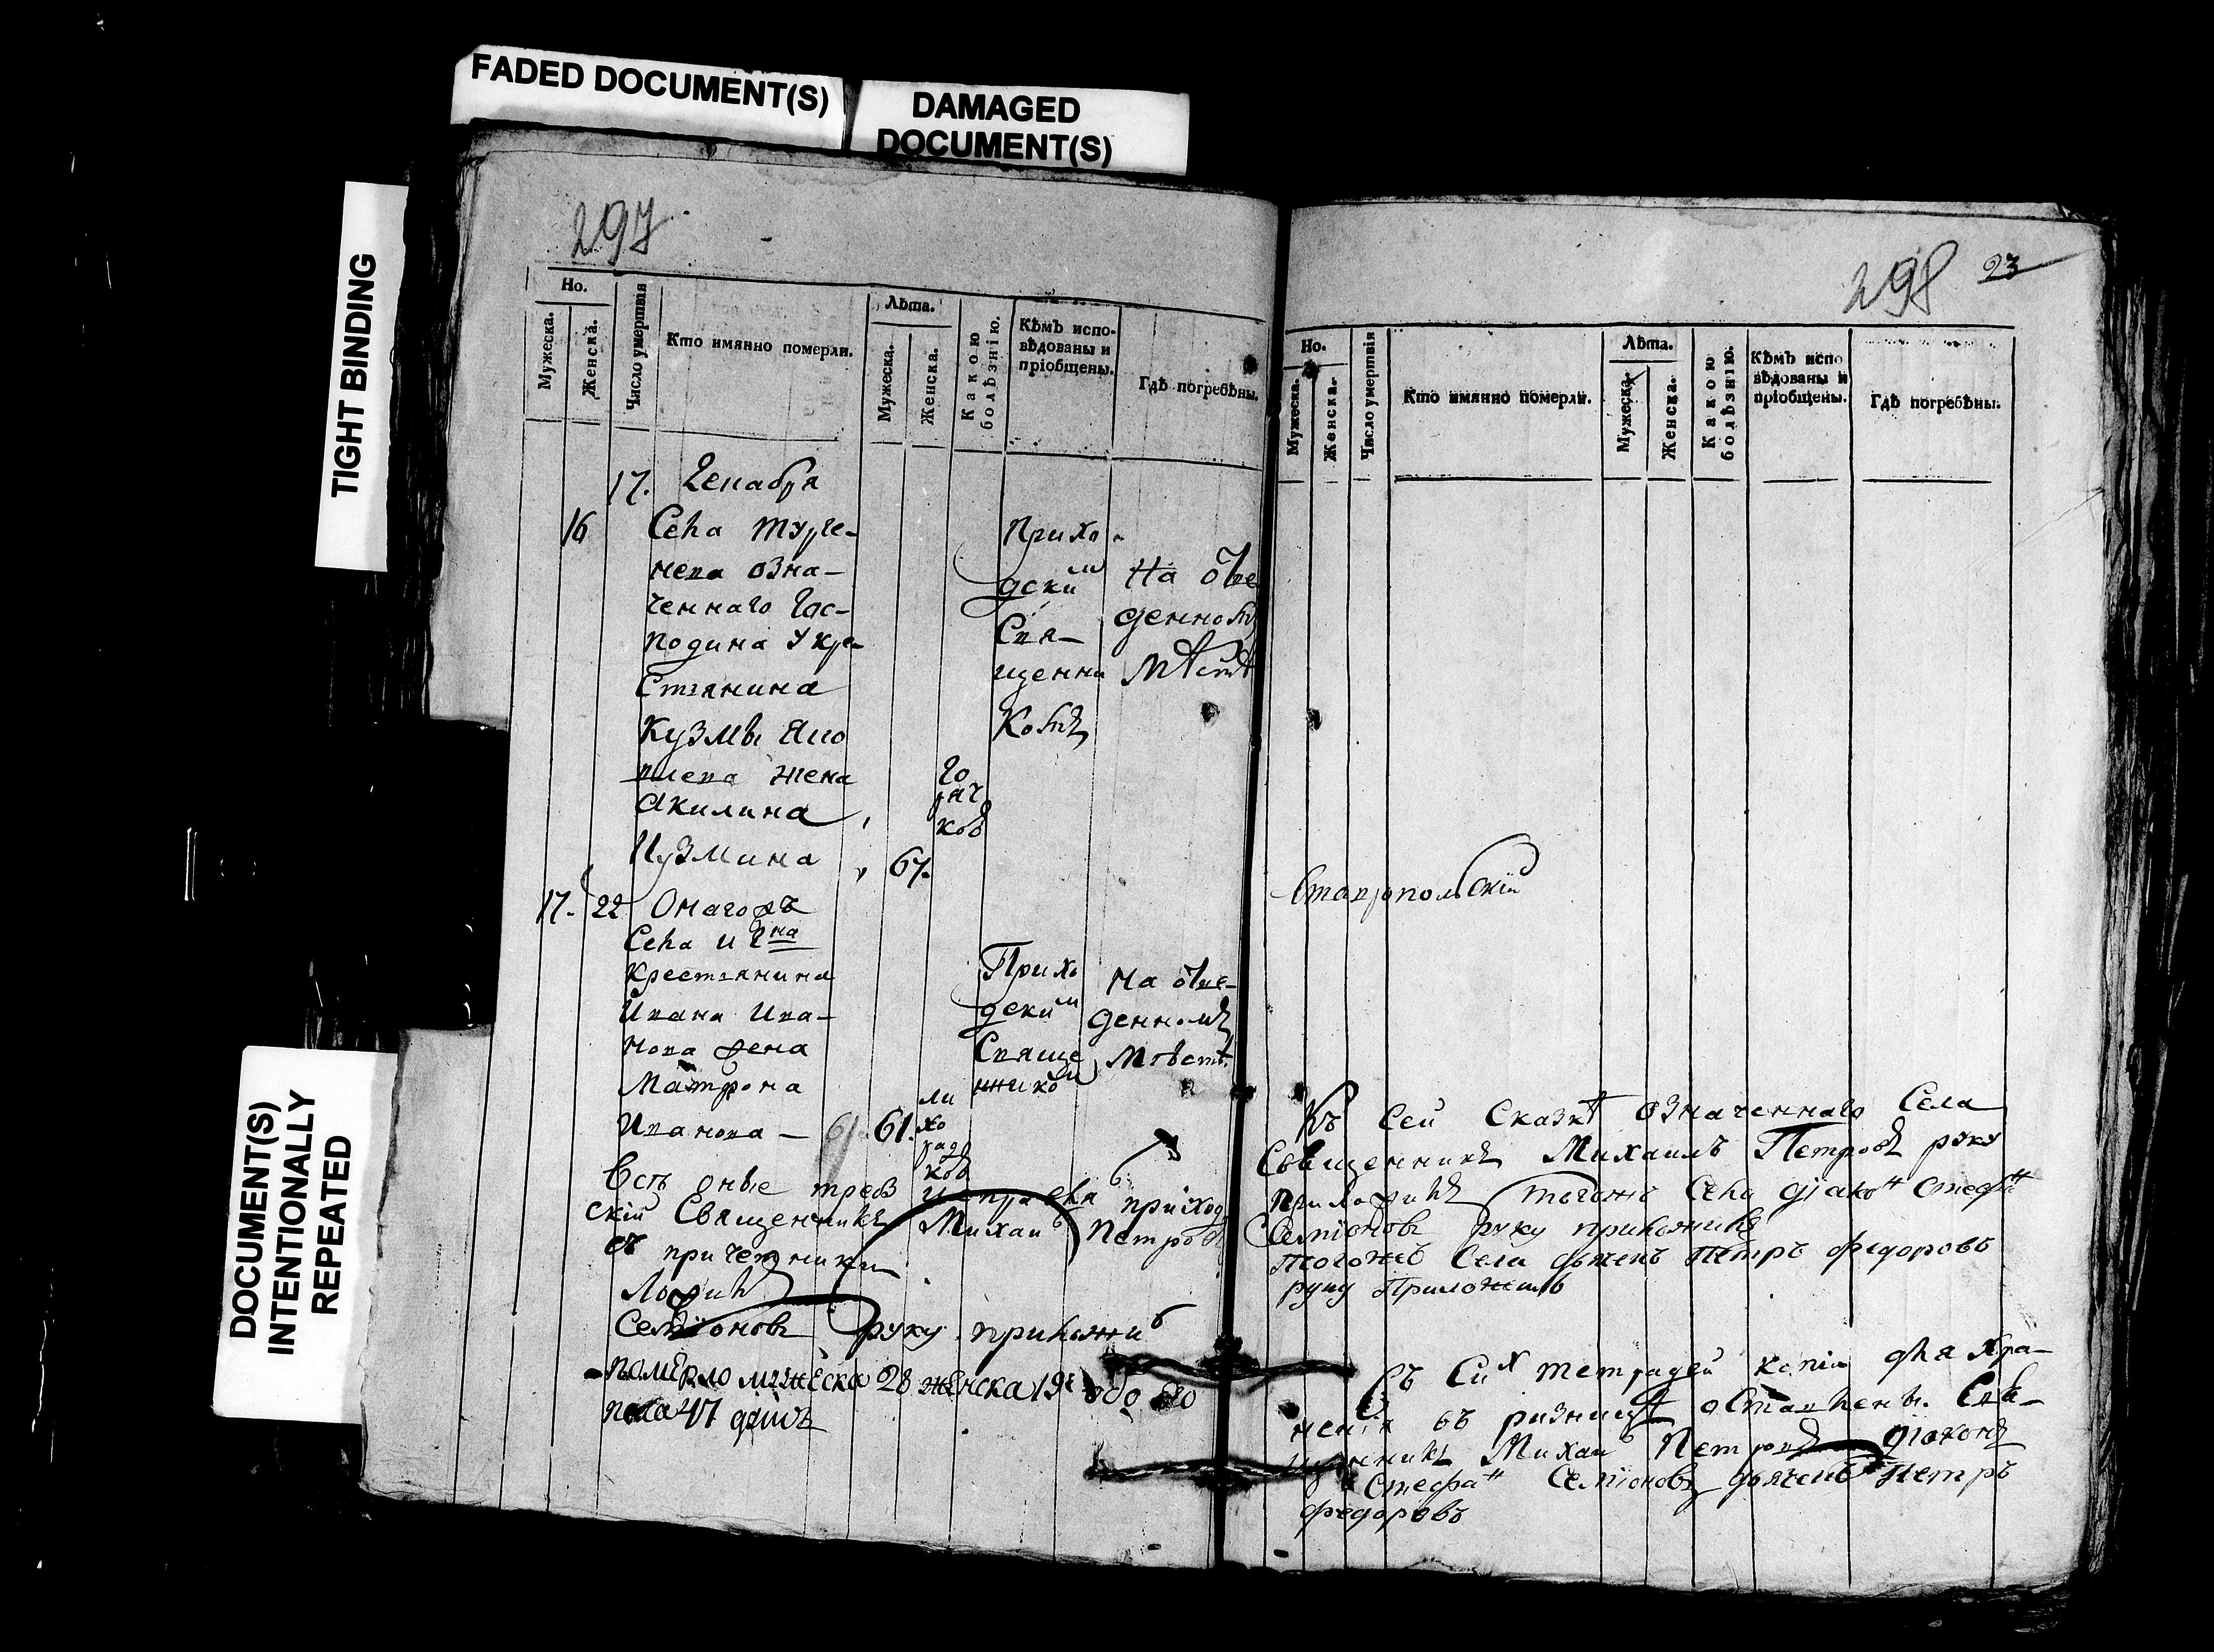 FADED DOCUMENT(S)
DAMAGED
DOCUMENT(S)
TIGHT BINDING
DOCUMENT(S)
INTENTIONALLY
REPEATED
297
Но.
Мужеска.
Женска.
Число умертвія
Кто имянно померли.
Лѣта.
Мужеска.
Женска.
Какою
болѣзнію.
Кѣмъ испо-
вѣдованы и
пріобщены.
Гдѣ погребѣны.
17. Декабря
16
Села Турге-
нева озна-
ченнаго Гос-
подина У кре
стянина
Кузмы
жена
Акилина
Кузмина 67.
го
ряч
кою
Прихо
дским
Свя-
щенни
комъ
На отве
денномъ
мѣстѣ
17. 22 Онагожъ
Села и Гна
крестянина
Ивана Ива-
нова жена
Матрона
Иванова - 61. 61.
ли
хо
радо
кою
Прихо
дским
Свяще
ннико
На отве-
денномъ
мѣстѣ
скій Священникъ Михаи Петровъ
съ причетники
Семіоновъ руку приложи
померло мужеска 28 женска 19 обо его
пола 47 душъ
298 23
Но.
Мужеска.
Женска.
Число умертвія
Кто имянно померли.
Лѣта.
Мужеска.
Женска.
Какою
болѣзнію.
Кѣмъ испо
вѣдованы и
пріобщены.
Гдѣ погребѣны.
Ставропольскій
Къ сей Сказкѣ означеннаго Села
Священникъ Михаилъ Петровъ руку
приложилъ тогожъ Села діако Стефа
Семіоновъ руку приложилъ
тогожъ Села дьячекъ Петръ Федоровъ
руку Приложилъ
Съ Си тетрадей копіи для хра-
неніи въ ризницѣ оставлены. Свя-
щенникъ Михаи Петровъ діаконъ
Стефа Семіоновъ дьячекъ Петръ
Федоровъ